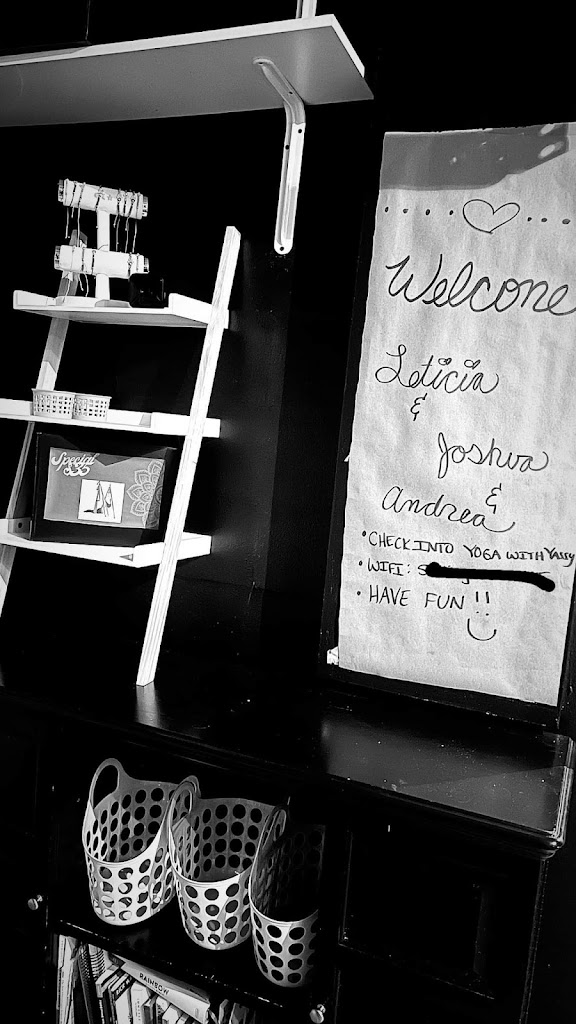 Welcone
Leticia
&
Joshua
&
Andrea
• CHECK INTO YOGA WITH YASSY
• WIFI: S
• HAVE FUN !!
Special
RAINBOW